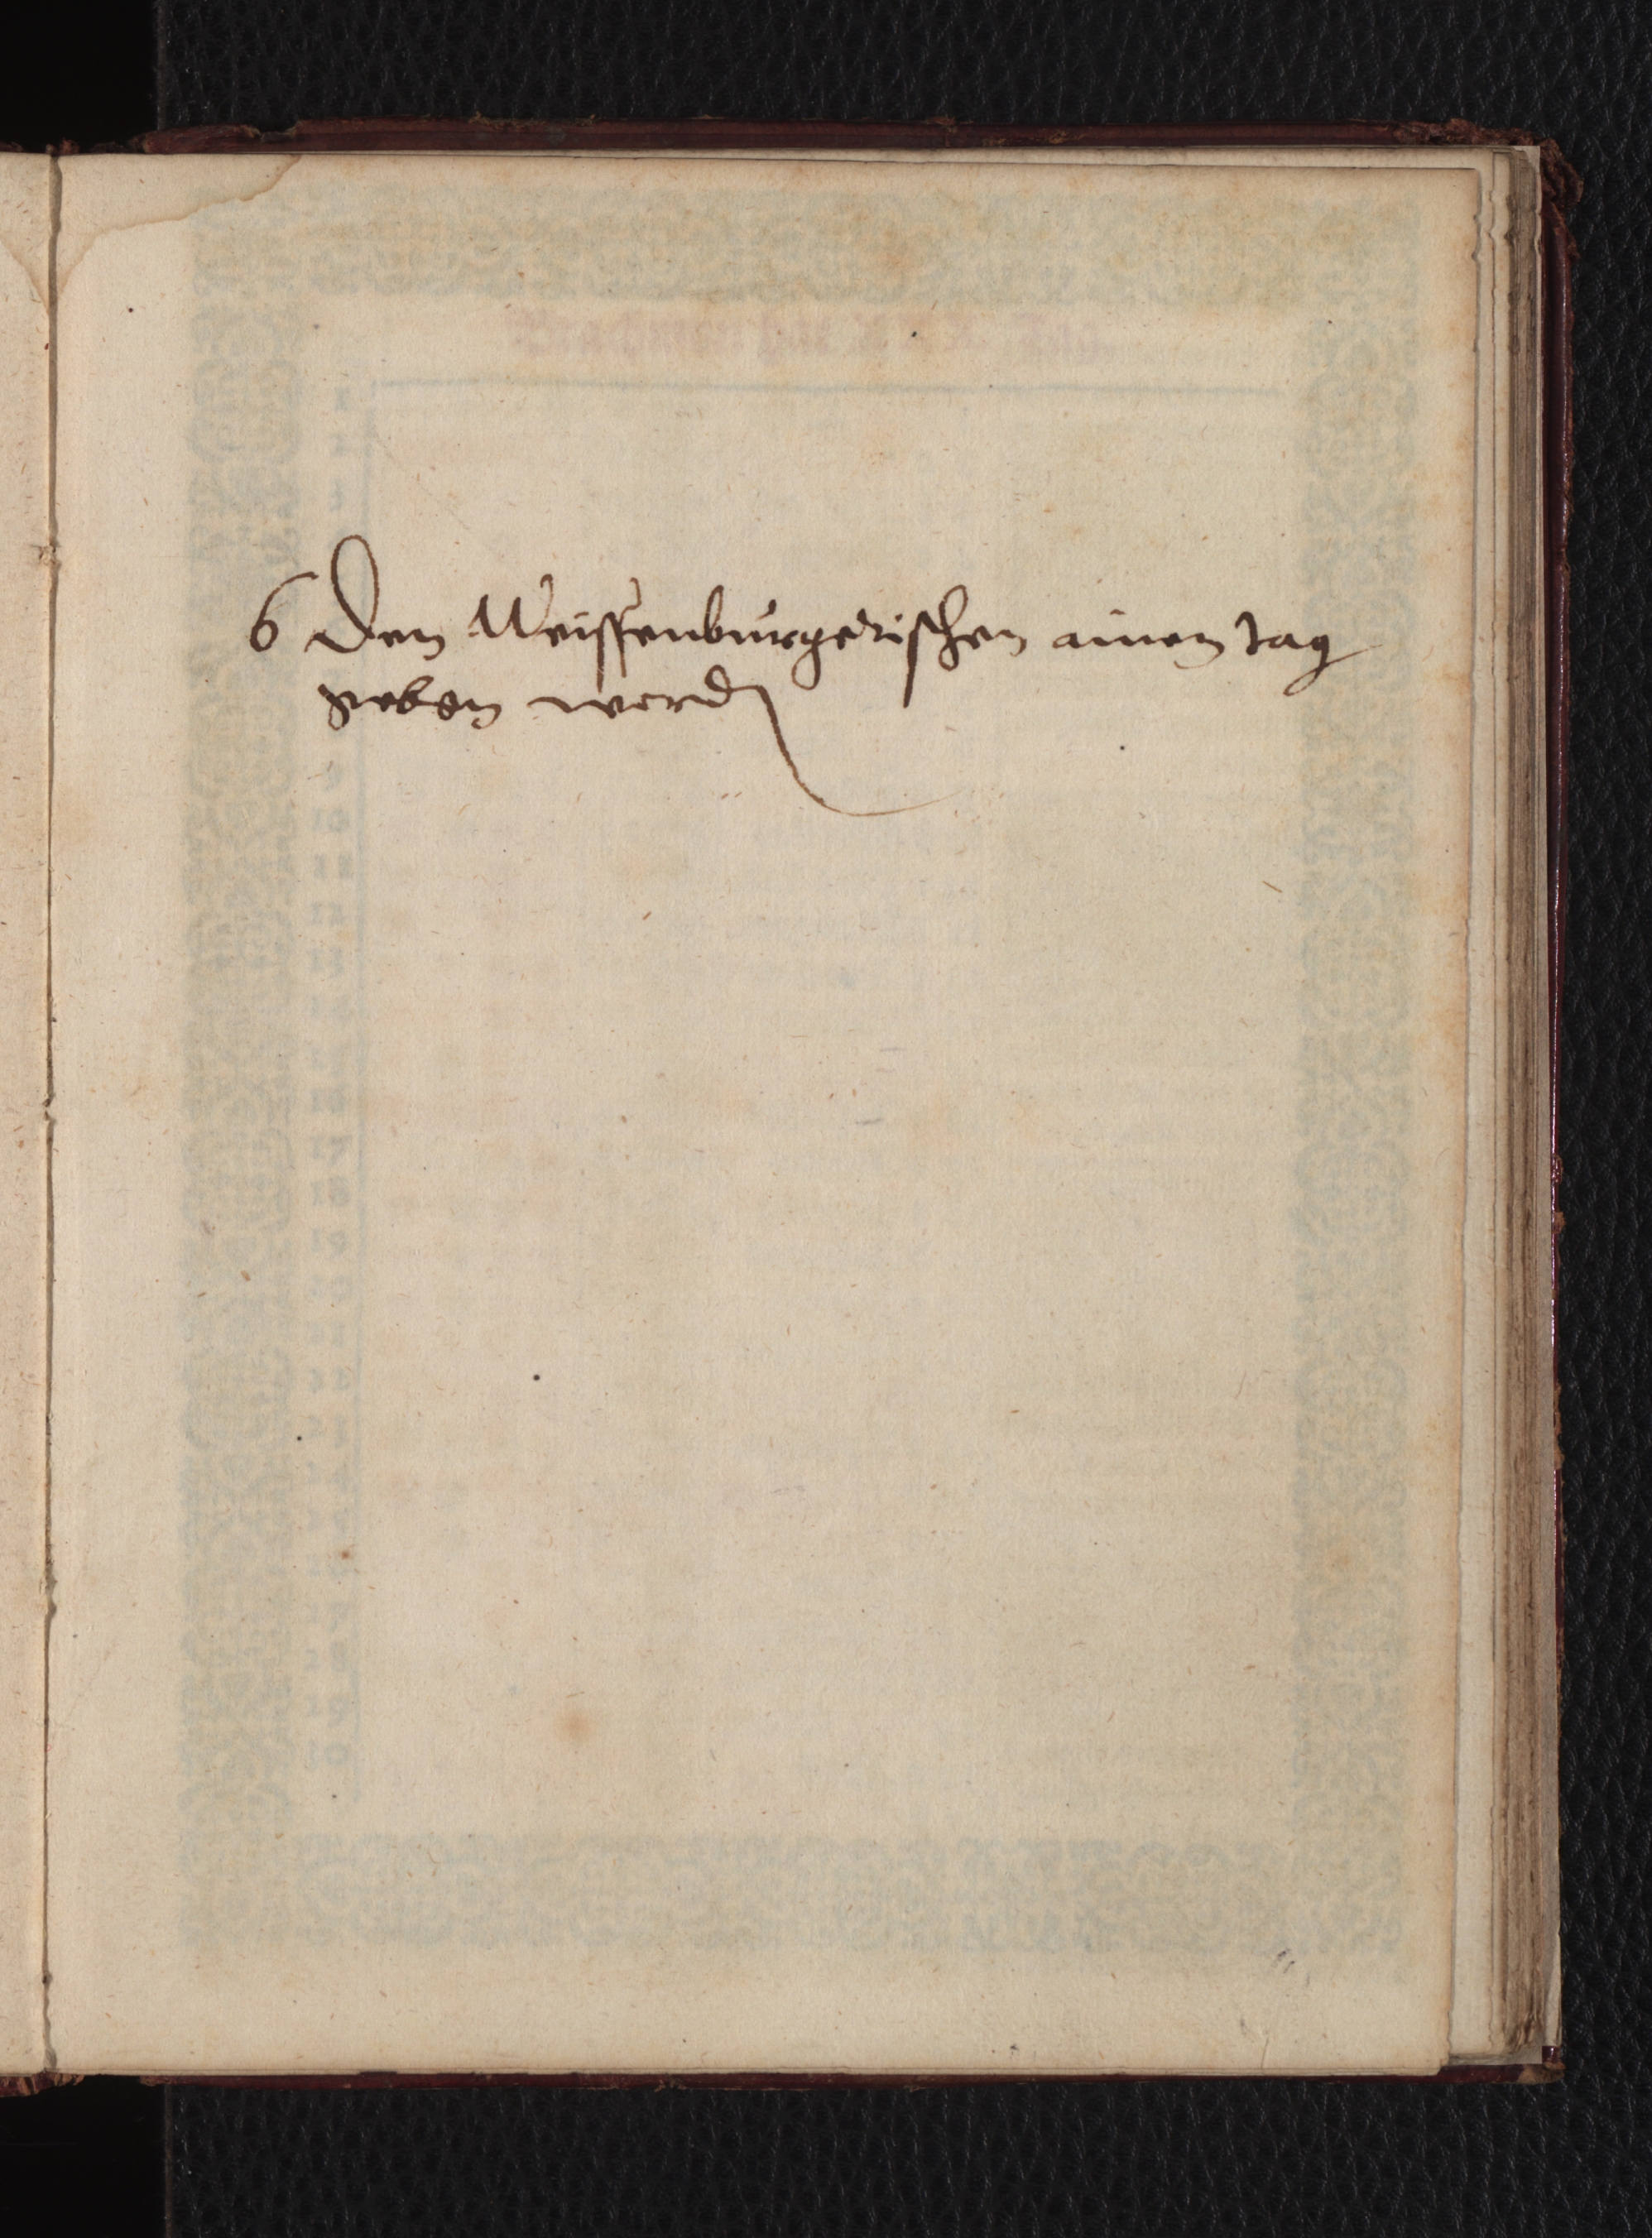 6 Den Weissenburgerischen ainen tag
geben werd